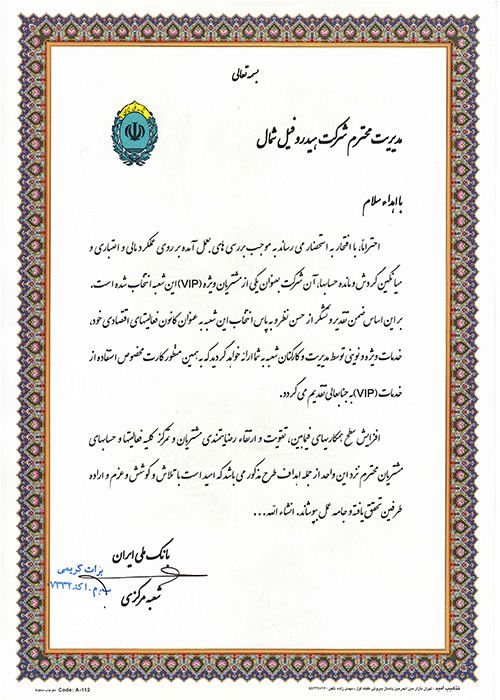 بسمه تعالی
مدیریت محترم شرکت هیدروفیل شمال
با اهداء سلام
احتراماً، با افتخار به استحضار می رساند به موجب بررسی های بعمل آمده بر روی عملکرد مالی و اعتباری و
میانگین گردش و مانده حسابها، آن شرکت بعنوان یکی از مشتریان ویژه (VIP) این شعبه انتخاب شده است.
بر این اساس ضمن تقدیر و تشکر از حسن نظر و به پاس انتخاب این شعبه به عنوان کانون فعالیتهای اقتصادی خود،
خدمات ویژه و نوینی توسط مدیریت و کارکنان شعبه به شما ارائه خواهد گردید که به همین منظور کارت مخصوص استفاده از
خدمات (VIP) به جنابعالی تقدیم می گردد.
افزایش سطح همکاریهای فیمابین، تقویت و ارتقاء رضایتمندی مشتریان و تمرکز کلیه فعالیتها و حسابهای
مشتریان محترم نزد این واحد از جمله اهداف طرح مذکور می باشد که امید است با تلاش و کوشش و عزم و اراده
طرفین تحقق یافته و جامه عمل بپوشاند. انشاء الله...
بانک ملی ایران
برات کریمی
کد ۰۷۳۳۲
شعبه مرکزی
Code: A-112
تذهیب امید